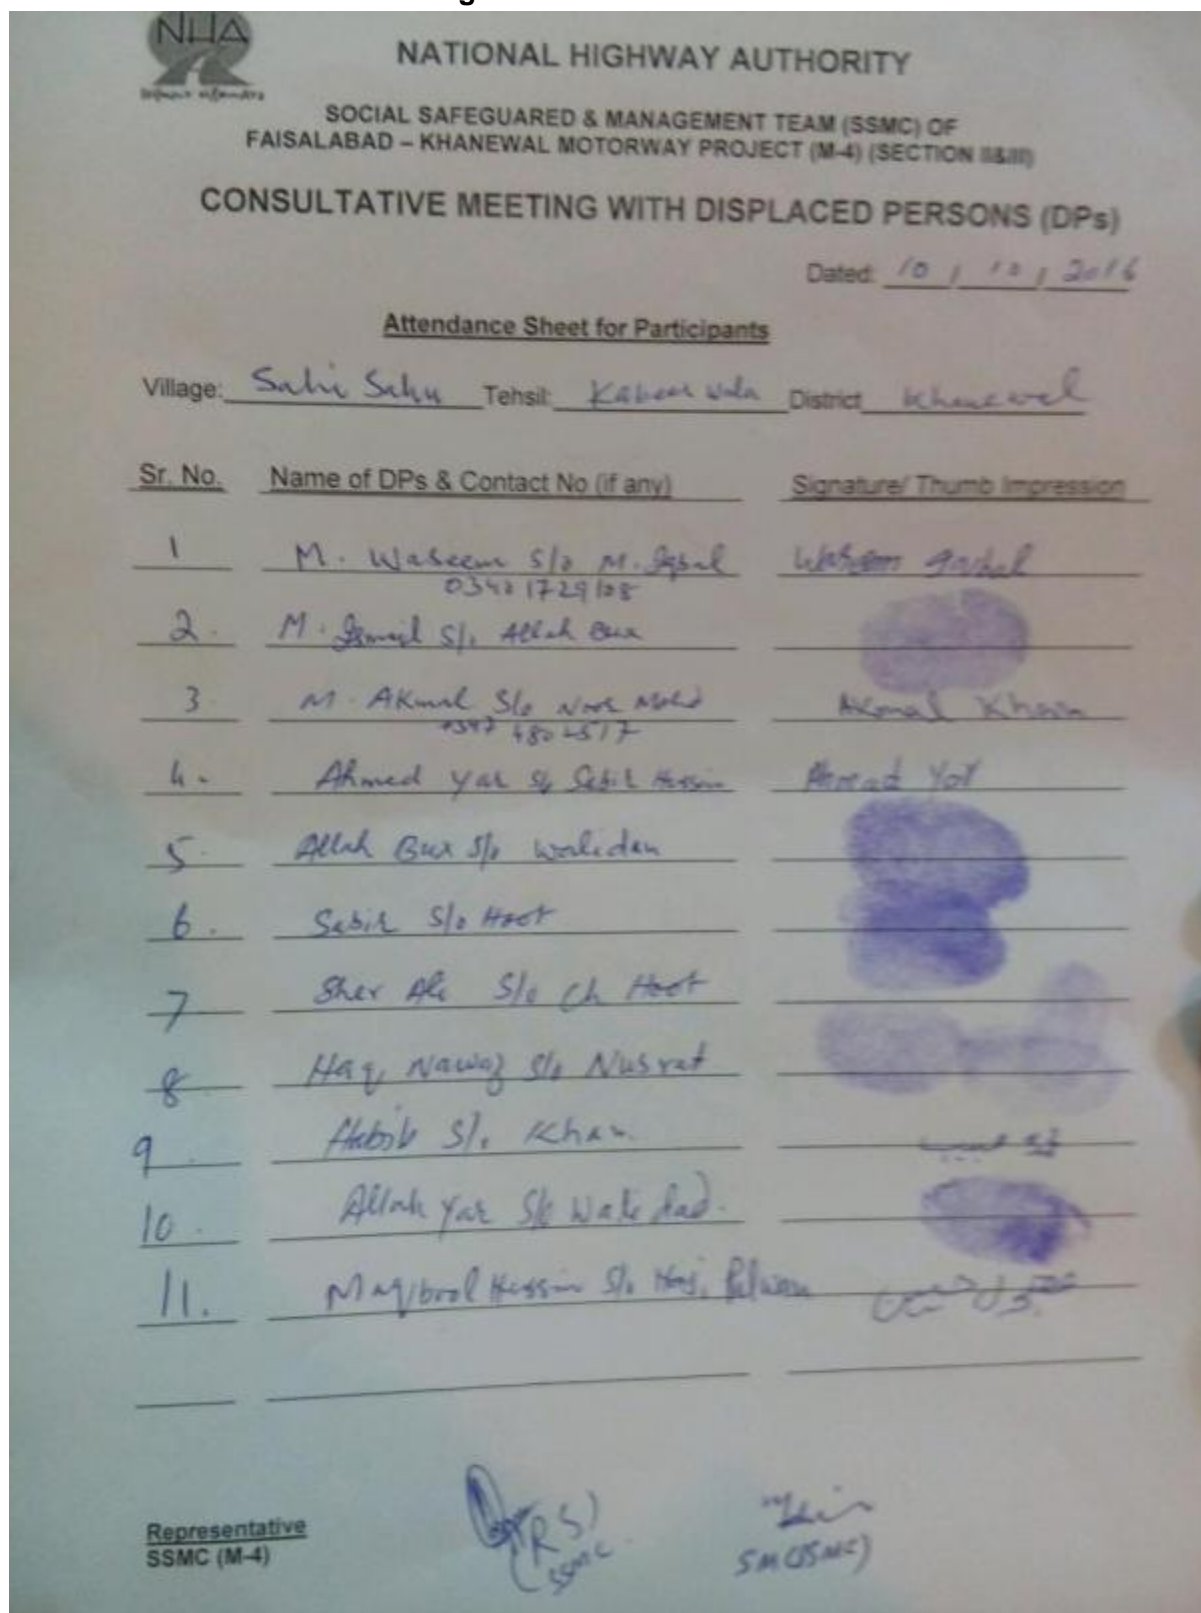 NHA
NATIONAL HIGHWAY AUTHORITY
SOCIAL SAFEGUARED & MANAGEMENT TEAM (SSMC) OF
FAISALABAD – KHANEWAL MOTORWAY PROJECT (M-4) (SECTION II&III)
CONSULTATIVE MEETING WITH DISPLACED PERSONS (DPs)
Dated: 10 / 10 / 2016
Attendance Sheet for Participants
Village: Sahi Sahu Tehsil: Kabeer wala District Khanewal
Sr. No. Name of DPs & Contact No (if any) Signature/ Thumb Impression
1 M. Waseem S/o M. Iqbal Waseem
2. M. Ismail S/o Allah Bux
3 M. Akmal S/o Noor Mohd Akmal Khan
4. Ahmed Yar S/o Sabir Hussain Ahmad Yar
5. Allah Bux S/o
6. Sabir S/o Hoot
7 Sher Ali S/o Ch Hoot
8 Haq Nawaz S/o Nusrat
9. Habib S/o Khan.
10. Allah Yar S/o Wali dad.
11. Maqbool Hussain S/o Haji
Representative
SSMC (M-4)
(RS)
SSMC
SM (SSMC)